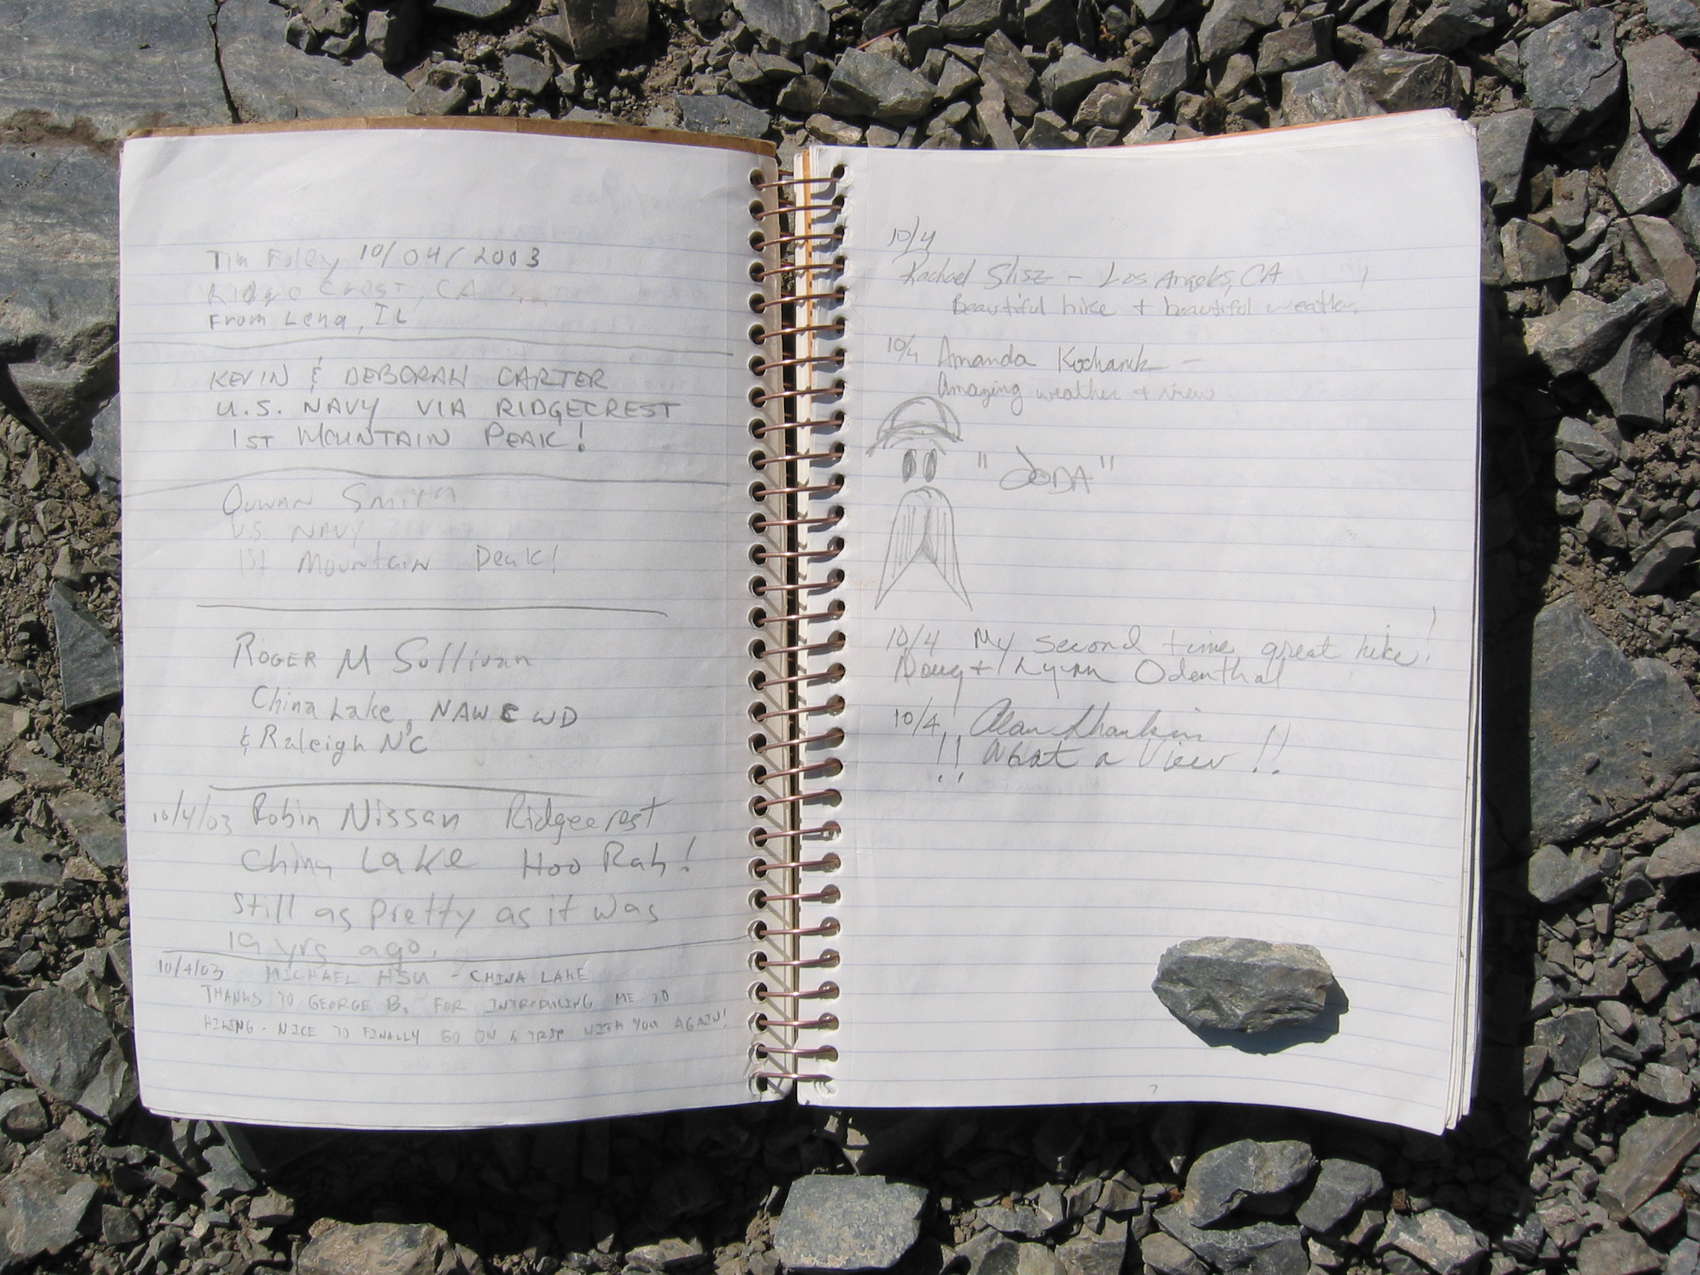 Tim Foley 10/04/2003
Ridge Crest, CA
From Lena, IL
KEVIN & DEBORAH CARTER
U.S. NAVY VIA RIDGECREST
1ST MOUNTAIN PEAK!
Quwan Smith
U.S. NAVY
1st Mountain Peak!
ROGER M Sullivan
China Lake, NAWC WD
& Raleigh NC
10/4/03 Robin Nissan Ridgecrest
China Lake Hoo Rah!
Still as pretty as it was
19 yrs ago.
10/4/03 MICHAEL HSU - CHINA LAKE
THANKS TO GEORGE B. FOR INTRODUCING ME TO
HIKING - NICE TO FINALLY GO ON A TRIP WITH YOU AGAIN!
10/4
Rachael Slisz - Los Angeles, CA
Beautiful hike + beautiful weather
10/4 Amanda
Amazing weather + view
"JoDA"
10/4 My second time great hike!
Doug + Lynn Odenthal
10/4 Alan
!! What a View !!